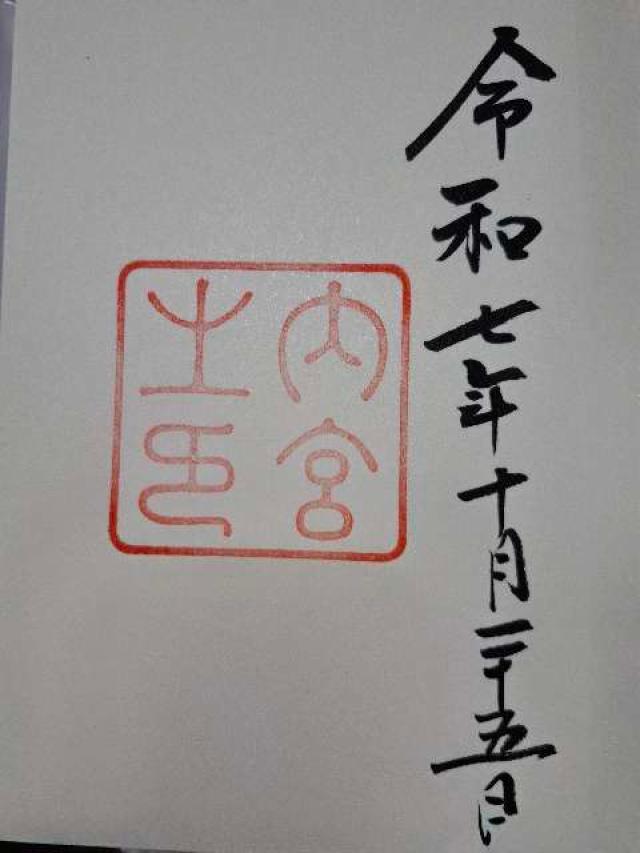 令和七年十月二十五日
内宮
之印